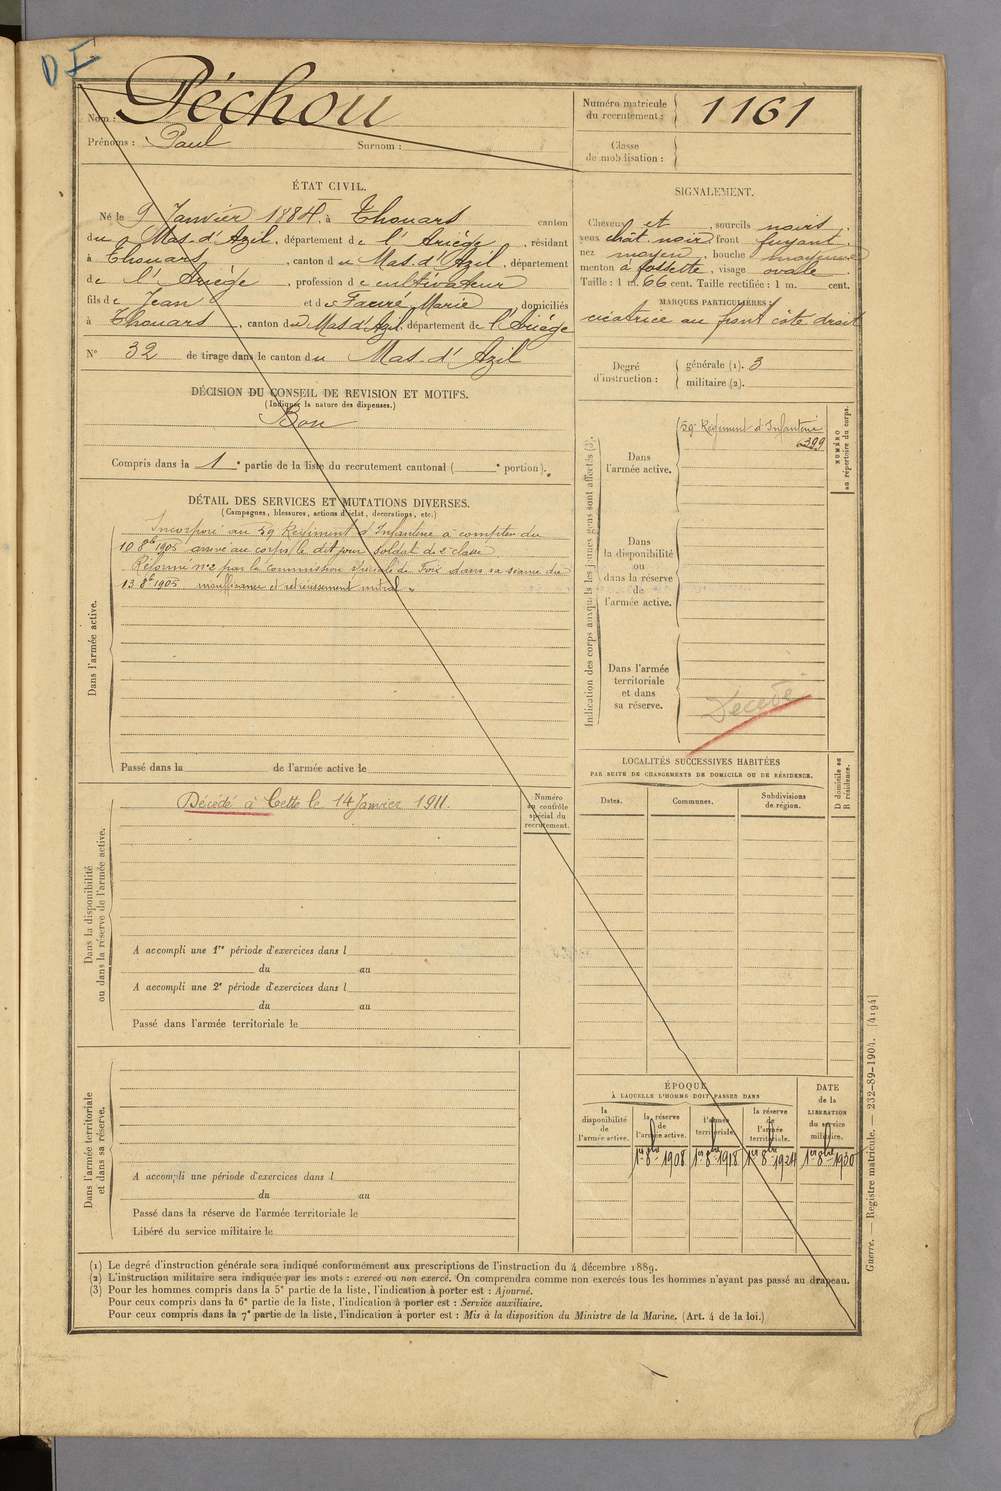 DF
Nom : Péchou
Prénoms : Paul Surnom :
Numéro matricule
du recrutement : 1161
Classe
de mobilisation :
ÉTAT CIVIL.
Né le 9 Janvier 1884, à Thouars canton
du Mas-d'Azil, département de l'Ariège, résidant
à Thouars, canton du Mas-d'Azil, département
de l'Ariège, profession de cultivateur
fils de Jean et de Fauré Marie, domiciliés
à Thouars, canton du Mas d'Azil, département de l'Ariège
N° 32 de tirage dans le canton du Mas-d'Azil
SIGNALEMENT.
Cheveux et, sourcils noirs,
yeux chât. noir, front fuyant,
nez moyen, bouche moyenne
menton à fossette, visage ovale.
Taille : 1 m. 66 cent. Taille rectifiée : 1 m. cent.
MARQUES PARTICULIÈRES :
cicatrice au front côté droit
Degré
d'instruction :
générale (1). 3
militaire (2).
DÉCISION DU CONSEIL DE REVISION ET MOTIFS.
(Indiquer la nature des dispenses.)
Bon
Compris dans la 1e partie de la liste du recrutement cantonal ( e portion).
DÉTAIL DES SERVICES ET MUTATIONS DIVERSES.
(Campagnes, blessures, actions d'éclat, décorations, etc.)
Dans l'armée active.
Incorporé au 59 Régiment d'Infanterie à compter du
10 8bre 1905 arrivé au corps le dit jour soldat de 2e classe
Réformé n° 2 par la Commission spéciale de Foix dans sa séance du
13 8bre 1905 insuffisance et rétrécissement mitral.
Passé dans la de l'armée active le
Indication des corps auxquels les jeunes gens sont affectés (3).
Dans
l'armée active.
59e Régiment d'Infanterie
6399
NUMÉRO
au répertoire du corps.
Dans
la disponibilité
ou
dans la réserve
de
l'armée active.
Dans l'armée
territoriale
et dans
sa réserve.
Décédé
LOCALITÉS SUCCESSIVES HABITÉES
PAR SUITE DE CHANGEMENTS DE DOMICILE OU DE RÉSIDENCE.
Dates. Communes. Subdivisions
de région.
D domicile ou
R résidence.
Dans la disponibilité
ou dans la réserve de l'armée active.
Décédé à Cette le 14 Janvier 1911.
Numéro
au contrôle
spécial du
recrutement.
A accompli une 1re période d'exercices dans l
du au
A accompli une 2e période d'exercices dans l
du au
Passé dans l'armée territoriale le
Dans l'armée territoriale
et dans sa réserve.
A accompli une période d'exercices dans l
du au
Passé dans la réserve de l'armée territoriale le
Libéré du service militaire le
ÉPOQUE
À LAQUELLE L'HOMME DOIT PASSER DANS
la
disponibilité
de
l'armée active.
la réserve
de
l'armée active.
l'armée
territoriale.
la réserve
de
l'armée
territoriale.
DATE
de la
LIBÉRATION
du service
militaire.
1er 8bre 1908 1er 8bre 1918 1er 8bre 1924 1er 8bre 1930
(1) Le degré d'instruction générale sera indiqué conformément aux prescriptions de l'instruction du 4 décembre 1889.
(2) L'instruction militaire sera indiquée par les mots : exercé ou non exercé. On comprendra comme non exercés tous les hommes n'ayant pas passé au drapeau.
(3) Pour les hommes compris dans la 5e partie de la liste, l'indication à porter est : Ajourné.
Pour ceux compris dans la 6e partie de la liste, l'indication à porter est : Service auxiliaire.
Pour ceux compris dans la 7e partie de la liste, l'indication à porter est : Mis à la disposition du Ministre de la Marine. (Art. 4 de la loi.)
Guerre. — Registre matricule. — 232-89-1904. [4194]